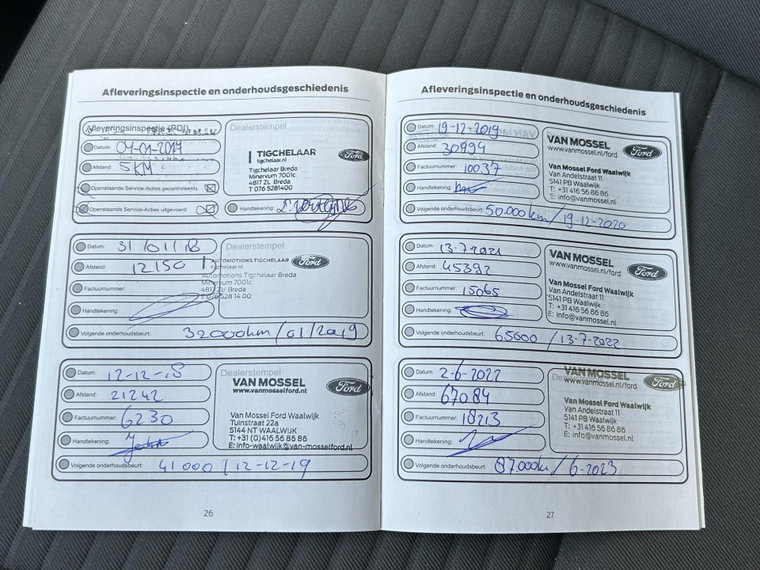 Afleveringsinspectie en onderhoudsgeschiedenis
Afleveringsinspectie (PDI)
Datum: 04-01-2017
Afstand: 5 KM
Openstaande Service-Acties gecontroleerd
Openstaande Service-Acties uitgevoerd
Dealerstempel
TIGCHELAAR
tigchelaar.nl
Ford
Tigchelaar Breda
Minervum 7001c
4817 ZL Breda
T 076 5281400
Handtekening:
Datum: 31/01/18
Afstand: 12150
Factuurnummer:
Handtekening:
Volgende onderhoudsbeurt: 32000km/01/2019
Dealerstempel
AUTOMOTIONS TIGCHELAAR
tigchelaar.nl
Ford
Automotions Tigchelaar Breda
Minervum 7001c
4817 ZL Breda
T 076 528 14 00
Datum: 12-12-18
Afstand: 21242
Factuurnummer: 6230
Handtekening:
Volgende onderhoudsbeurt: 41000 / 12-12-19
Dealerstempel
VAN MOSSEL
www.vanmosselford.nl
Ford
Van Mossel Ford Waalwijk
Tuinstraat 22a
5144 NT WAALWIJK
T: +31 (0)416 56 86 86
E: info-waalwijk@van-mosselford.nl
26
Afleveringsinspectie en onderhoudsgeschiedenis
Datum: 19-12-2019
Afstand: 30994
Factuurnummer: 10037
Handtekening:
Volgende onderhoudsbeurt: 50.000km/19-12-2020
VAN MOSSEL
www.vanmossel.nl/ford
Ford
Van Mossel Ford Waalwijk
Van Andelstraat 11
5141 PB Waalwijk
T: +31 416 56 86 86
E: info@vanmossel.nl
Datum: 13-7-2021
Afstand: 45392
Factuurnummer: 15065
Handtekening:
Volgende onderhoudsbeurt: 65000 / 13-7-2022
VAN MOSSEL
www.vanmossel.nl/ford
Ford
Van Mossel Ford Waalwijk
Van Andelstraat 11
5141 PB Waalwijk
T: +31 416 56 86 86
E: info@vanmossel.nl
Datum: 2-6-2022
Afstand: 67084
Factuurnummer: 18213
Handtekening:
Volgende onderhoudsbeurt: 87.000km/6-2023
VAN MOSSEL
www.vanmossel.nl/ford
Ford
Van Mossel Ford Waalwijk
Van Andelstraat 11
5141 PB Waalwijk
T: +31 416 56 86 86
E: info@vanmossel.nl
27